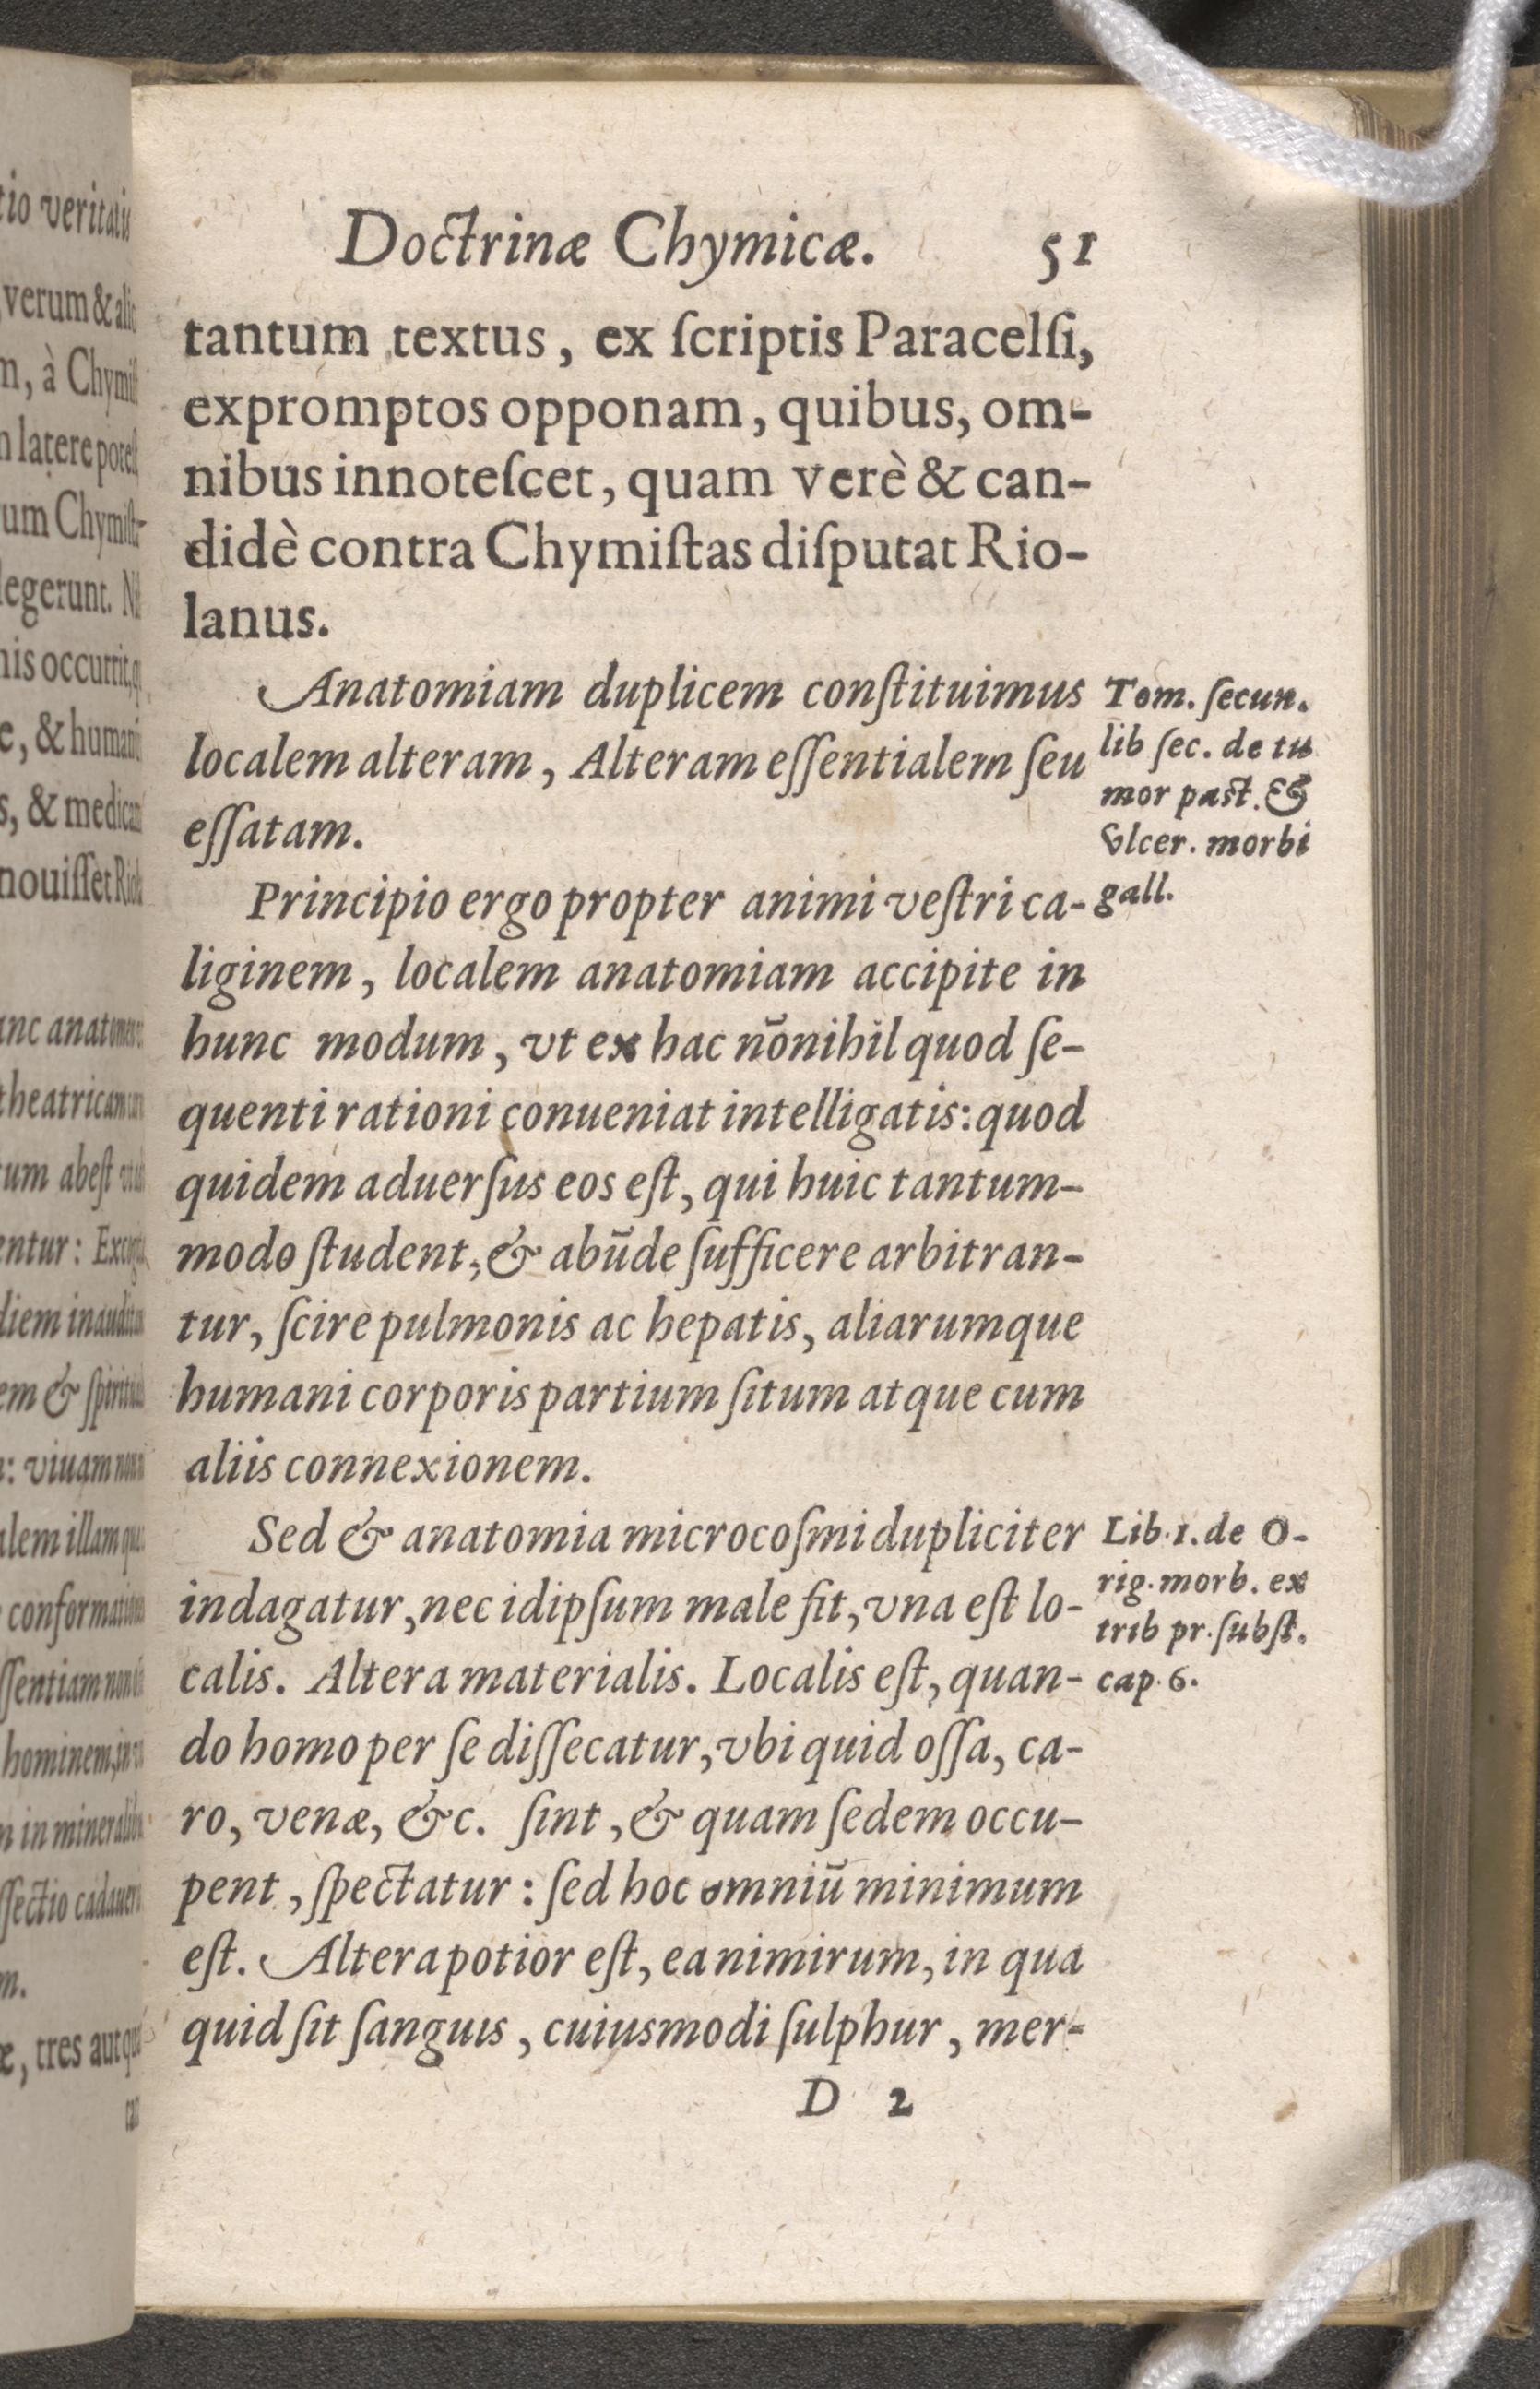 Doctrinæ Chymicæ. 51
tantum textus, ex ſcriptis Paracelſi,
expromptos opponam, quibus, om-
nibus innoteſcet, quam verè & can-
didè contra Chymiſtas diſputat Rio-
lanus.
Anatomiam duplicem conſtituimus
localem alteram, Alteram eſſentialem ſeu
eſſatam.
Principio ergo propter animi veſtri ca-
liginem, localem anatomiam accipite in
hunc modum, vt ex hac nōnihil quod ſe-
quenti rationi conueniat intelligatis: quod
quidem aduerſus eos eſt, qui huic tantum-
modo ſtudent, & abūde ſufficere arbitran-
tur, ſcire pulmonis ac hepatis, aliarumque
humani corporis partium ſitum atque cum
aliis connexionem.
Sed & anatomia microcoſmi dupliciter
indagatur, nec idipſum male fit, vna eſt lo-
calis. Altera materialis. Localis eſt, quan-
do homo per ſe diſſecatur, vbi quid oſſa, ca-
ro, venæ, &c. ſint, & quam ſedem occu-
pent, ſpectatur: ſed hoc omniū minimum
eſt. Altera potior eſt, ea nimirum, in qua
quid ſit ſanguis, cuiusmodi ſulphur, mer-
D 2
Tom. ſecun.
lib ſec. de tu
mor paſt. &
vlcer. morbi
gall.
Lib. 1. de O-
rig. morb. ex
trib pr. ſubſt.
cap. 6.
tio veritatis
verum & 
, à
latere
um
legerunt.
occurrit,
, & 
, & 
nouiſſet
abeſt
:
em & 
: viuam
illam
hominem,
in
, tres aut